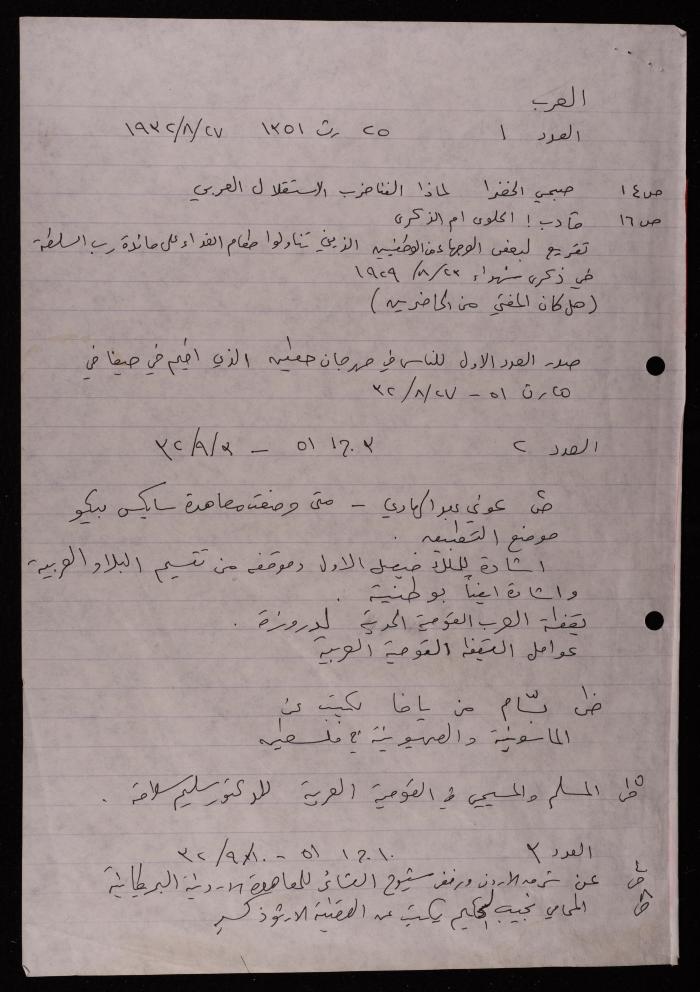 العرب
العدد ١ ٢٥ رت ١٣٥١ ٢٧/٨/١٩٣٢
ص١٤ صبحي الخضرا لماذا الفنا حزب الاستقلال العربي
ص١٦ مآدب! الحلوى ام الذكرى
تقريع لبعض الوجهاء الوطنيين الذين تناولوا طعام الغداء على مائدة رب السلطة
في ذكرى شهداء ٢٣/٨/١٩٢٩
(هل كان المفتي من الحاضرين)
صدر العدد الاول للناس في مهرجان حطين الذي اقيم في حيفا في
رت ٥١ - ٢٧/٨/٣٢
العدد ٢ ٣ ج١ ٥١ - ٣/٩/٣٢
عوني عبد الهادي - متى وضعت معاهدة سايكس بيكو
موضع التطبيق .
اشادة للملك فيصل الاول وموقفه من تقسيم البلاد العربية
واشادة ايضاً بوطنية .
يقظة العرب القومية الحديثة لدروزة .
عوامل اليقظة القومية العربية
بسّام من يافا يكتب عن
الماسونية والصهيونية في فلسطين
المسلم والمسيحي في القومية العربية للدكتور سليم سلامة .
العدد ٣ ١٠ ج١ ٥١ - ١٠/٩/٣٢
عن شرق الاردن ورفض شيوخ العشائر للمعاهدة الاردنية البريطانية
المحامي نجيب الحكيم يكتب عن القضية الارثوذكسية